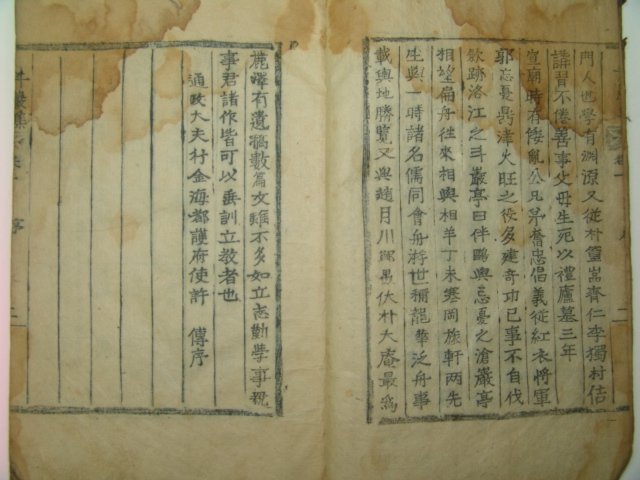 門人也學有淵源又從朴篁嵓齊仁李獨村佶
講習不倦善事父母生死以禮廬墓三年
宣廟時有倭亂公兄弟奮忠倡義從紅衣將軍
郭忘憂鼎津火旺之役多建奇功已事不自伐
歛跡洛江之斗巖亭曰伴鷗與忘憂之滄巖亭
相望扁舟往來相與相羊丁未寒岡旅軒兩先
生與一時諸名儒同會舟游世稱龍華泛舟事
載輿地勝覽又與趙月川 易伏朴大庵最爲
麗澤有遺稿數篇文雖不多如立志勤學事親
事君諸作皆可以垂訓立教者也
通政大夫行金海都護府使許 傳序
斗巖集 序 二